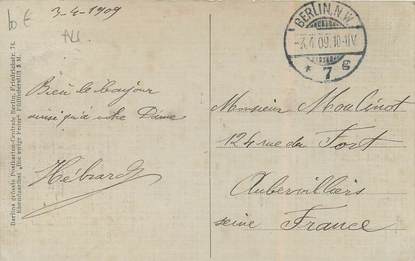 3-4-1909
BERLIN, N.W.
-3.4.09.10-11V.
* 7 g
Bien le bonjour
ainsi qu'à votre Dame
Hébrard
Monsieur Moulinot
124 rue du Fort
Aubervilliers
seine France
Berlins grösste Postkarten-Centrale Berlin, Friedrichstr. 74.